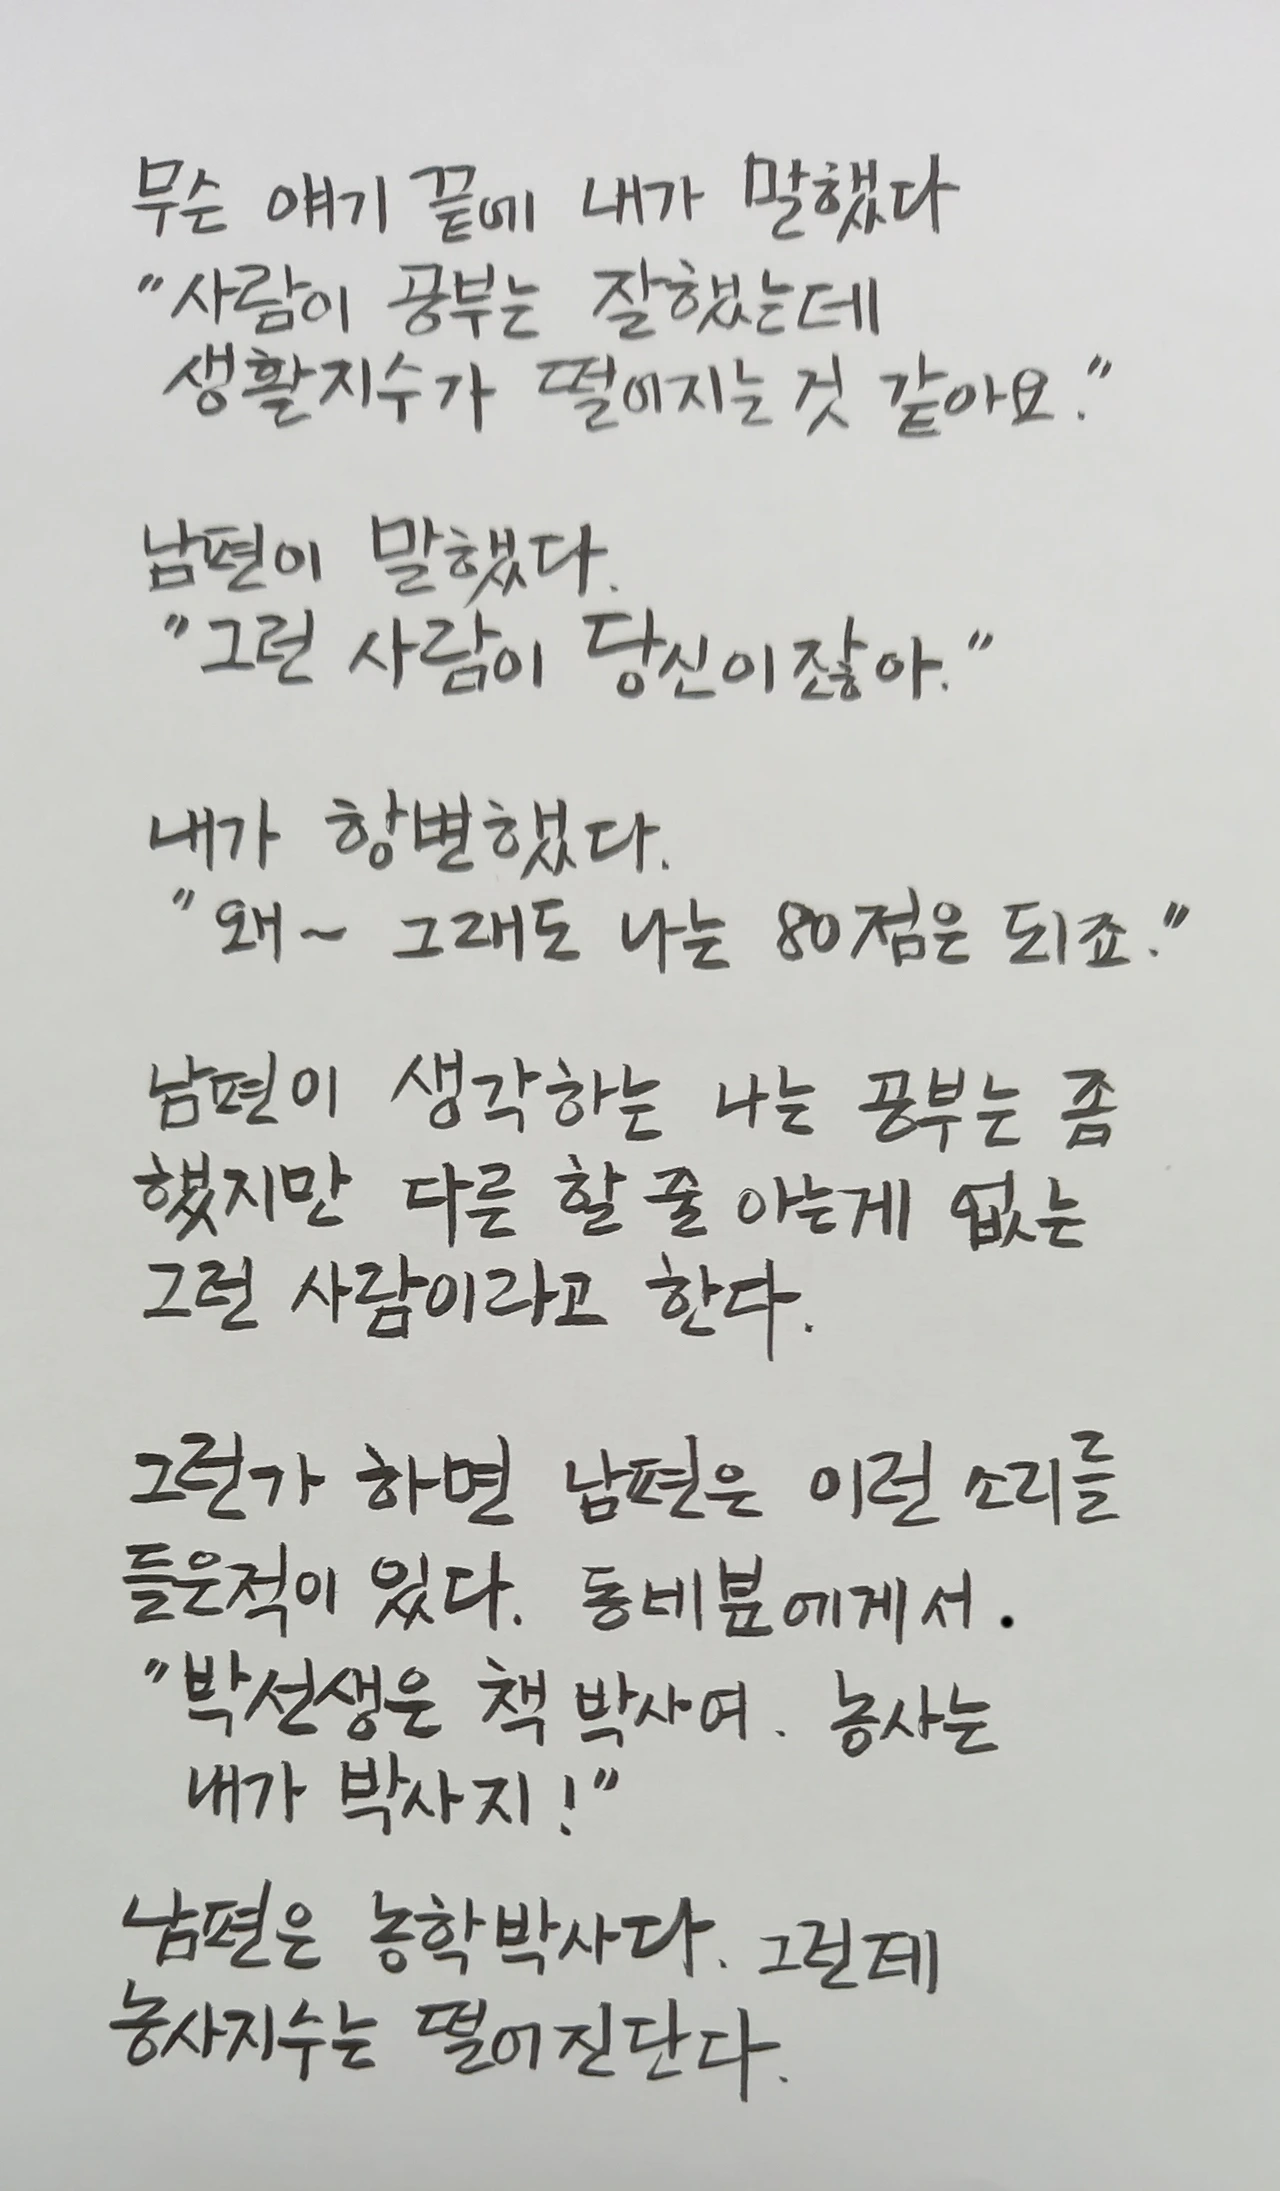 무슨 얘기 끝에 내가 말했다
"사람이 공부는 잘했는데
생활지수가 떨어지는 것 같아요."
남편이 말했다.
"그런 사람이 당신이잖아."
내가 항변했다.
"왜~ 그래도 나는 80점은 되죠."
남편이 생각하는 나는 공부는 좀
했지만 다른 할 줄 아는게 없는
그런 사람이라고 한다.
그런가 하면 남편은 이런 소리를
들은적이 있다. 동네분에게서.
"박선생은 책 박사여. 농사는
내가 박사지!"
남편은 농학박사다. 그런데
농사지수는 떨어진단다.